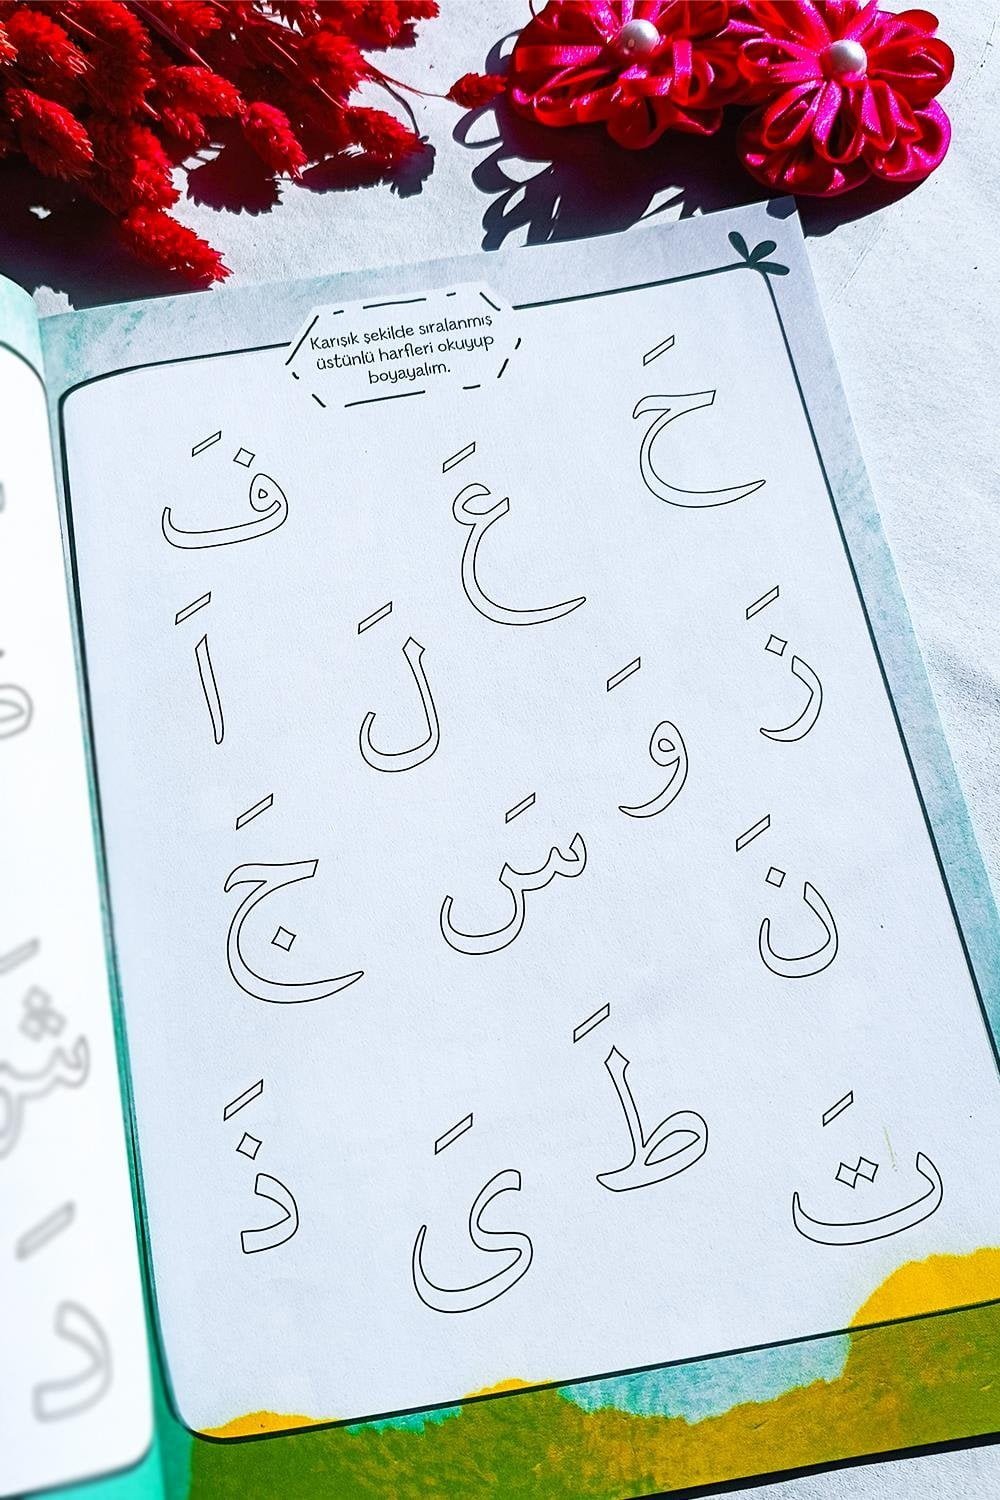 Karışık şekilde sıralanmış
üstünlü harfleri okuyup
boyayalım.
حَ عَ فَ
زَ وَ لَ اَ
نَ سَ جَ
تَ طَ ىَ ذَ
شَ
دَ